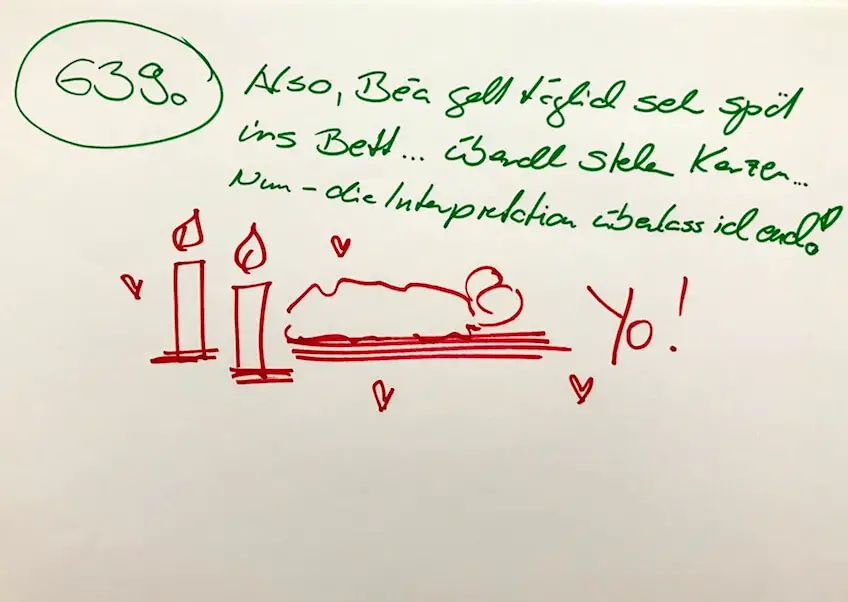 639.
Also, Béa geht täglich sehr spät
ins Bett... überall stehen Kerzen...
Nun - die Interpretation überlass ich euch!
Yo!